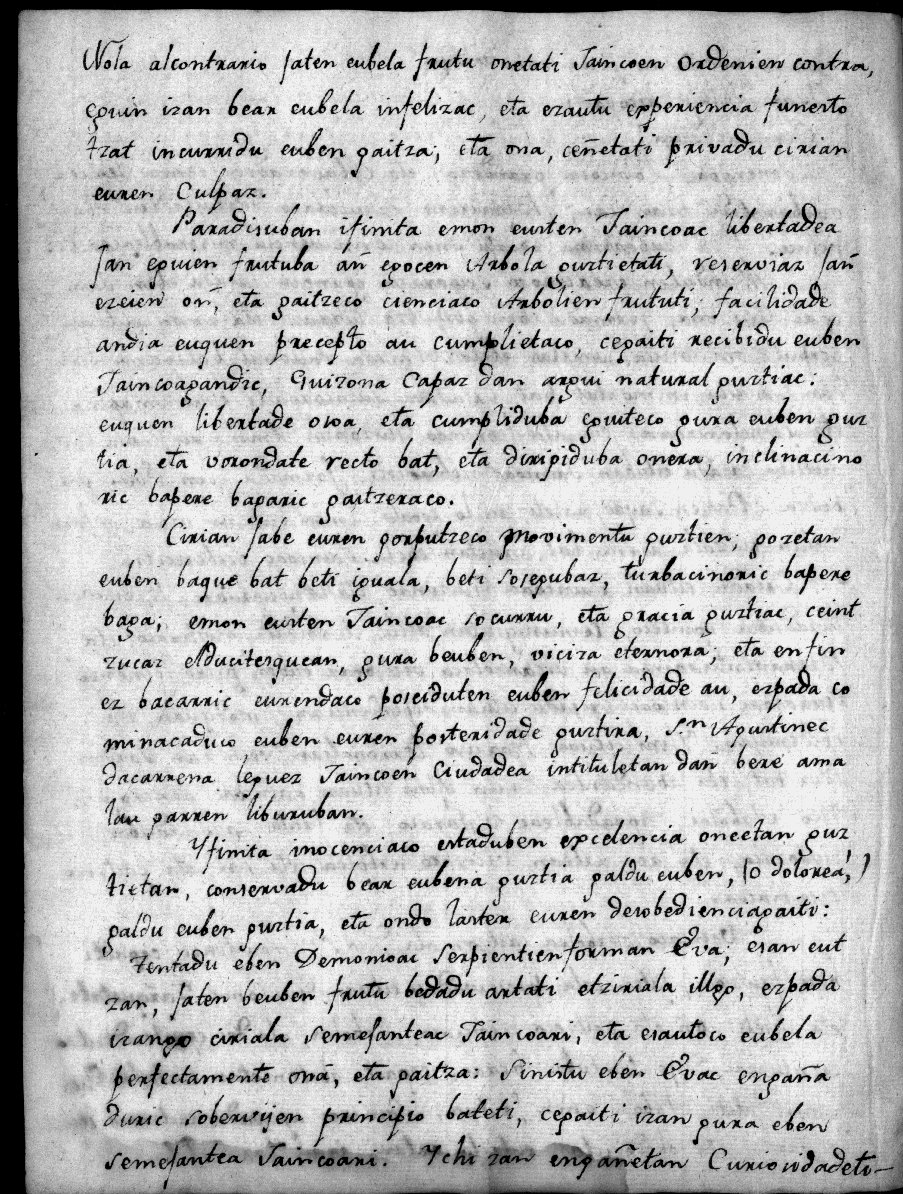 Nola alcontrario jaten eubela frutu onetati Jaincoen ordenien contra,
eguin izan bear eubela infelizac, eta ezautu experiencia funesto
tzat incurridu euben gaitza; eta ona, ceñetati privadu cirian
euren Culpaz.
Paradisuban ifinita emon eusten Jaincoac libertadea
jan eguien frutuba an̄ egocen Arbola guztietati, reserviaz jan̄
ezeien on̄, eta gaitzeco cienciaco Arbolien frututi; facilidade
andia euquen precepto au cumplietaco, cegaiti recibidu euben
Jaincoagandic, Guizona Capaz dan argui natural guztiac:
euquen libertade osoa, eta cumpliduba eguiteco gura euben guz
tia, eta vorondate recto bat, eta dirigiduba onera, inclinacino
ric bapere bagaric gaitzeraco.
Cirian jabe euren gorputzeco movimentu guztien; gozetan
euben baque bat beti iguala, beti sosegubaz, turbacinoric bapere
baga; emon eusten Jaincoac socurru, eta gracia guztiac, ceint
zucaz elducitesquean, gura beuben, viciza eternora; eta enfin
ez bacarric eurendaco poseiduten euben felicidade au, ezpada co
minacaduco euben euren posteridade guztira, Sn Agustinec
dacarrena leguez Jaincoen Ciudadea intituletan dan̄ bere ama
lau garren liburuban.
Yfinita inocenciaco estaduben excelencia oneetan guz
tietan, conservadu bear eubena guztia galdu euben, (o dolorea!)
galdu euben guztia, eta ondo laster euren desobedienciagaiti:
tentadu eben Demonioac Serpientien forman Eva; esan eut
zan, jaten beuben frutu bedadu artati etziriala illgo, ezpada
izango ciriala semejanteac Jaincoari, eta esautoco eubela
perfectamente oná, eta gaitza: Sinistu eben Evac engaña
duric sobervijen principio bateti, cegaiti izan gura eben
semejantea Jaincoari. Ychi zan engañetan Curiosidadeti-